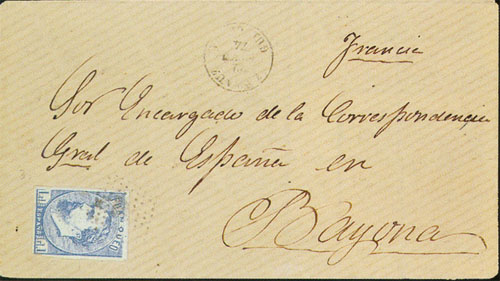 Francia
Sor Encargado de la Correspondencia
Gral de España en
Bayona